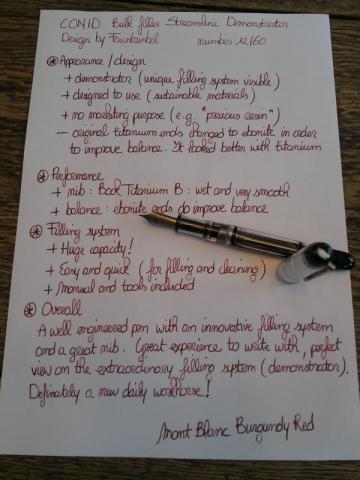 CONID Bulk filler Streamline Demonstrator
Design by Fountainbel number 12/60
* Appearance / design
+ demonstrator (unique filling system visible)
+ designed to use (sustainable materials)
+ no marketing purpose (e.g. "precious resin")
- original titanium ends changed to ebonite in order
to improve balance. It looked better with titanium
* Performance
+ nib: Bock Titanium B: wet and very smooth
+ balance: ebonite ends do improve balance
* Filling system
+ Huge capacity!
+ Easy and quick (for filling and cleaning)
+ Manual and tools included
* Overall
A well engineered pen with an innovative filling system
and a great nib. Great experience to write with, perfect
view on the extraordinary filling system (demonstrator).
Definately a new daily workhorse!
Mont Blanc Burgundy Red